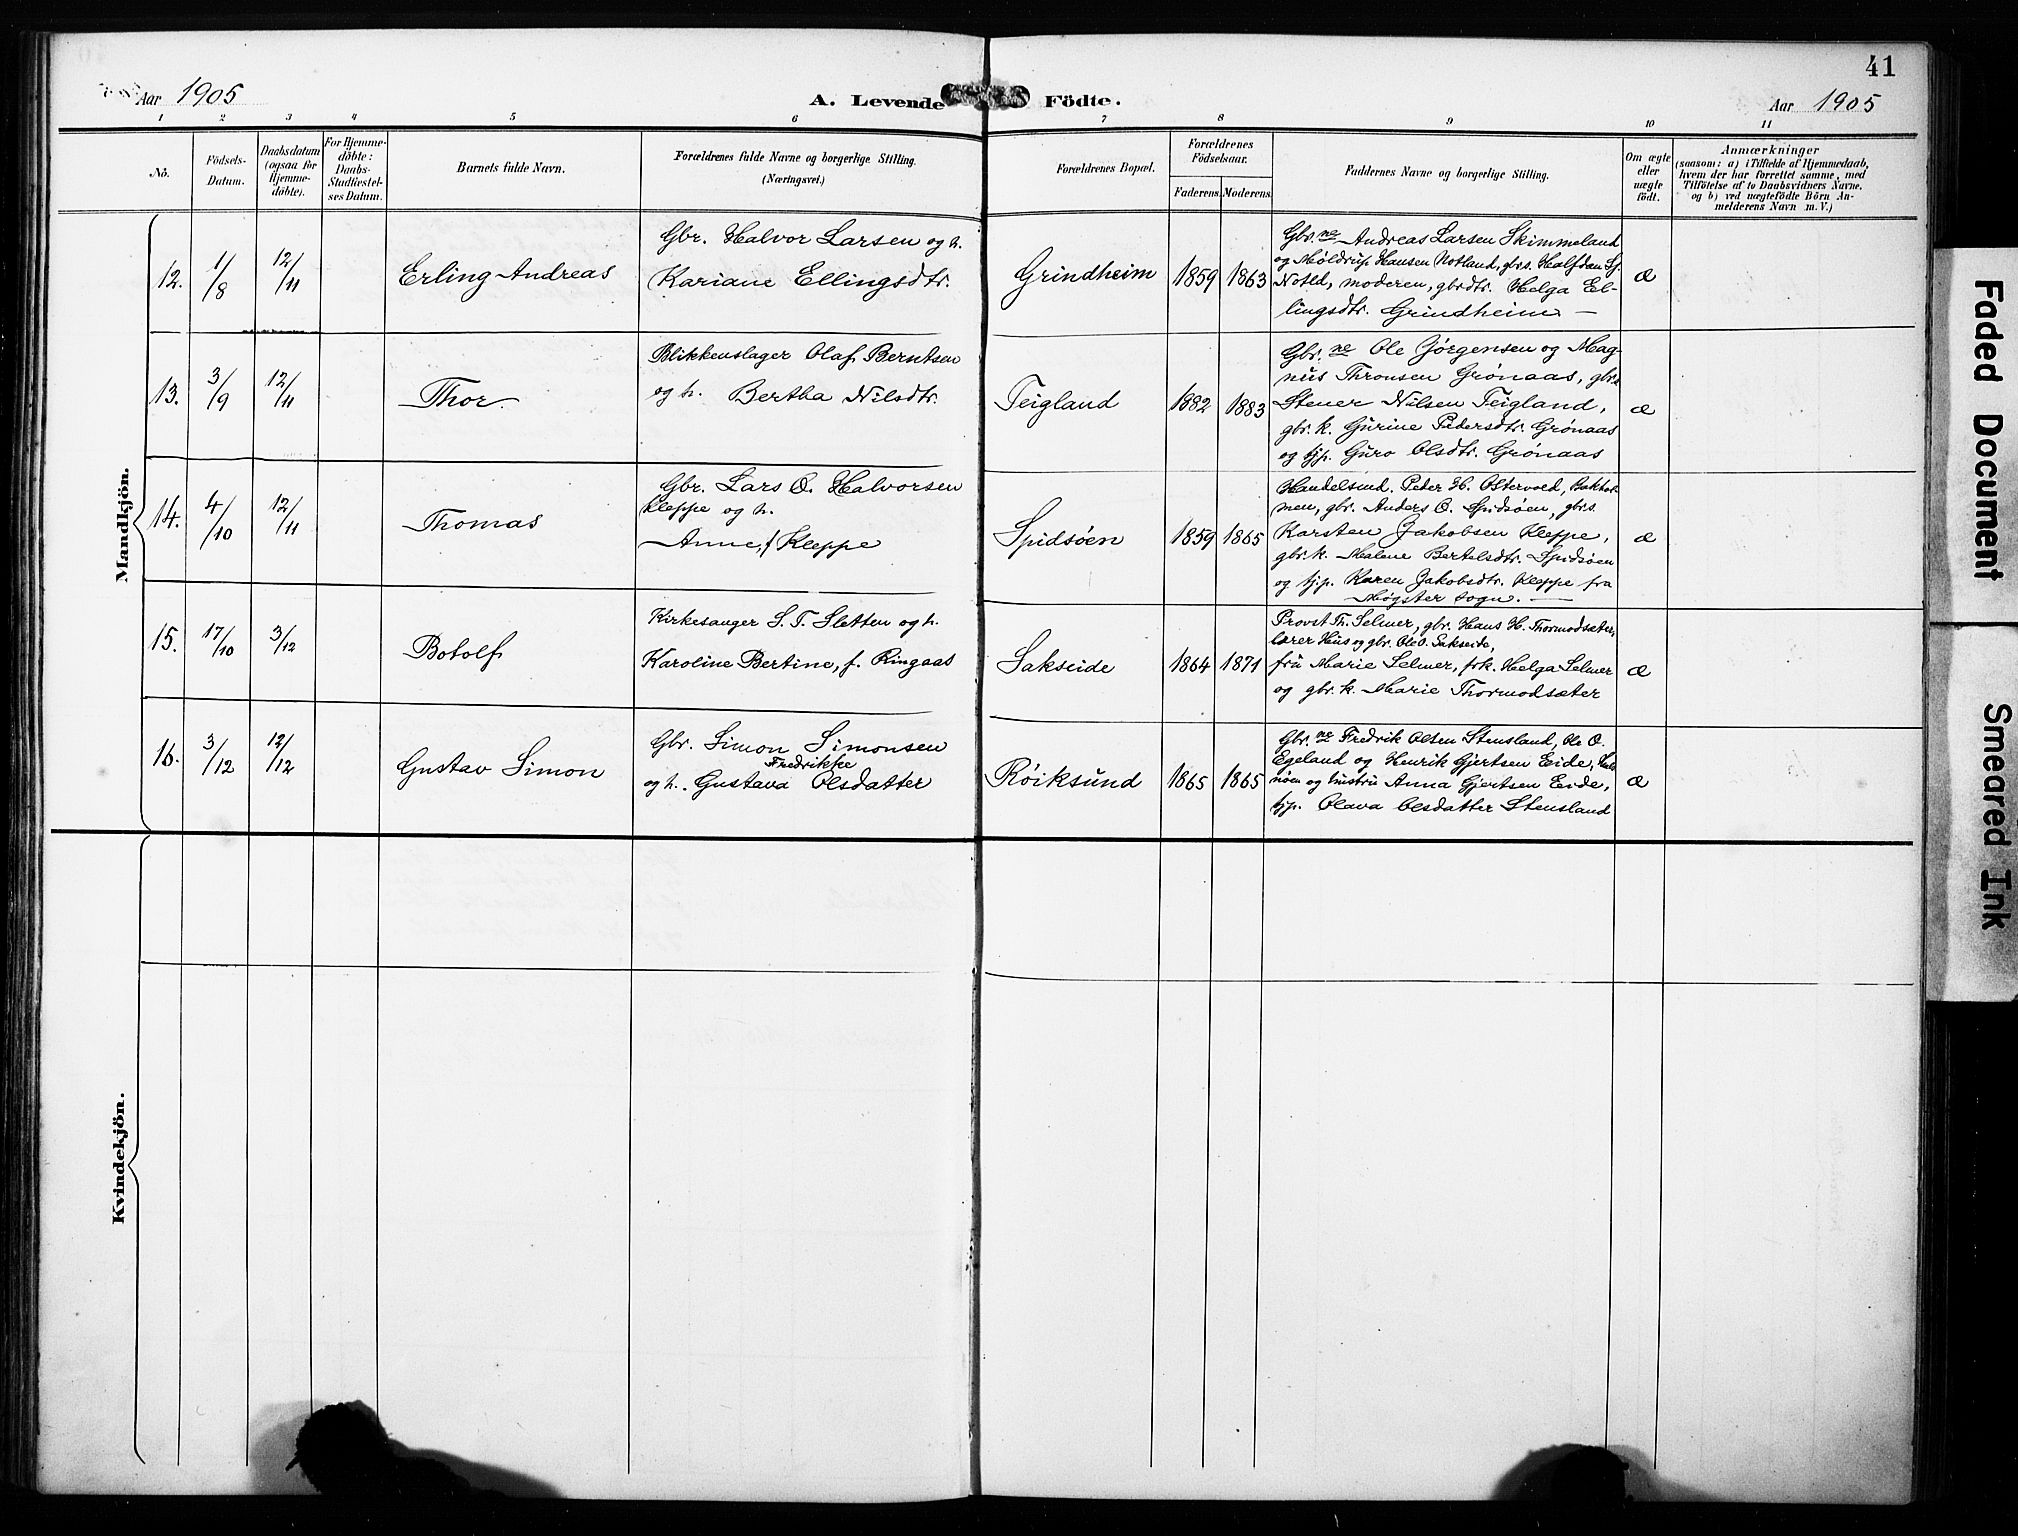 41
Aar 1905
A. Levende Födte.
Aar 1905
1 2 3 4 5 6 7 8 9 10 11
No.
Födsels-
Datum.
Daabsdatum
(ogsaa for
Hjemme-
döbte).
For Hjemme-
döbte:
Daabs-
Stadfæstel-
ses Datum.
Barnets fulde Navn.
Forældrenes fulde Navne og borgerlige Stilling.
(Næringsvei.)
Forældrenes Bopæl.
Forældrenes
Födselsaar.
Faderens. Moderens.
Faddernes Navne og borgerlige Stilling.
Om ægte
eller
uægte
födt.
Anmærkninger
(saasom: a) i Tilfælde af Hjemmedaab,
hvem der har forrettet samme, med
Tilföielse af to Daabsvidners Navne,
og b) ved uægtefödte Börn An-
melderens Navn m.V.)
Mandkjön.
12.
1/8
12/11
Erling Andreas
Gbr. Halvor Larsen og h.
Kariane Ellingsdtr.
Grindheim
1859
1863
Gbr.ne Andreas Larsen Skimmeland
og Møldrup Hansen Notland, gbrs. Halfdan
Notld, moderen, gbrdtr. Helga El-
lingsdtr. Grindheim —
æ
13.
3/9
12/11
Thor.
Blikkenslager Olaf Berntsen
og h. Bertha Nilsdtr.
Teigland
1882
1883
Gbr.ne Ole Jørgensen og Mag-
nus Thronsen Grønaas, gbrs.
Stener Nilsen Teigland,
gbr. k. Gurine Pedersdtr. Grønaas
og tjp. Guro Olsdtr. Grønaas
æ
14.
4/10
12/11
Thomas
Gbr. Lars O. Halvorsen
Kleppe og h.
Anne, f Kleppe
Spidsøen
1859
1865
Handelsmd. Peder H. Østervold, Bekhol-
men, gbr. Anders O. Spidsøen, gbrs.
Karsten Jakobsen Kleppe,
gbr. k. Malene Bertelsdtr. Spidsøen
og tjp. Karen Jakobsdtr. Kleppe fra
Møgster sogn. —
æ
15.
17/10
3/12
Botolf
Kirkesanger S. T. Sletten og h.
Karoline Bertine, f. Ringaas
Sakseide
1864
1871
Provst Th. Selmer, gbr. Hans H. Thormodsæter,
lærer Hus og gbr. Ole O. Sakseide,
fru Marie Selmer, frk. Helga Selmer
og gbr. k. Marie Thormodsæter
æ
16.
3/12
12/12
Gustav Simon
Gbr. Simon Simonsen
Fredrikke
og h. Gustava Olsdatter
Røiksund
1865
1865
Gbr.ne Fredrik Olsen Stensland, Ole O.
Egeland og Henrik Gjertsen Eide,
nøen og hustru Anna Gjertsen Eide,
tjp. Olava Olsdatter Stensland
æ
Kvindekjön.
Faded Document
Smeared Ink